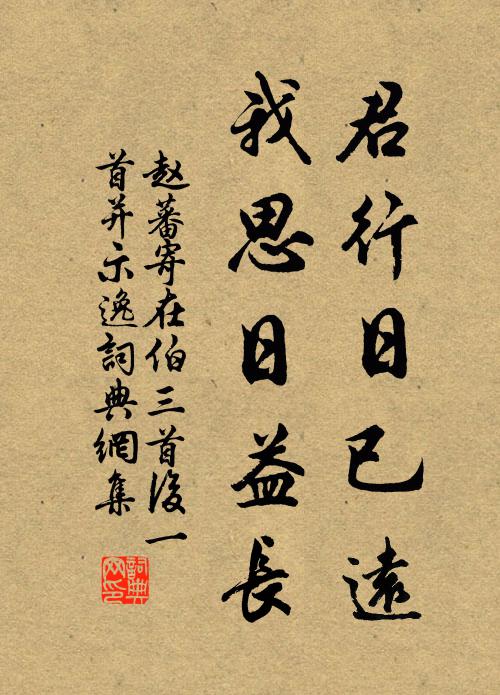 君行日已遠
我思日益長
赵蕃寄在伯三首後一
首并示逸詞典網集
詞典
网印